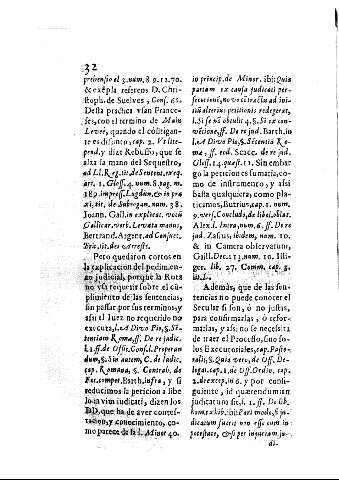 32
prehensio el 3. num. 8 9. 11. 70.
& exēpla referens D. Chri-
stoph. de Suelves, Conf. 61.
Desta practica vsan France-
ses, con el termino de Main
Leveè, quando el cōlitigan-
te es difunto, cap. 2. Vt lite
pend. y dize Rebuffo, que se
alza la mano del Sequestro,
ad Ll. Reg. tit. de Sentent. exeq.
art. 1. Gloss. 4. num. 8. pag. m.
189. impress. Lugdun. & in pra
xi, tit. de Subrogan. num. 38.
Joann. Gall. in explicat. vocū
Gallicar. verb. Levata manus,
Bertrand. Argent. ad Consuet.
tit. des arrestz.
Pero quedaron cortos en
la explicacion del pedimien-
to judicial, porque la Rota
no vsa requerir sobre el cū-
plimiento de las sentencias,
sin passar por sus terminos; y
assi el Juez no requerido no
executa, l. A Divo Pio, §. Sē-
tentiam Romæ, ff. De re judic.
l. 1. ff. de Offic. Cons. l. Properan
dum, §. Sin autem, C. de Iudic.
cap. Romana, §. Contrah. de
For. compet. Barth. infra, y si
reducimos la peticion a libe
lo in vim judicati, dizen los
DD. que ha de aver contes-
tacion, y conocimiento, co-
mo parece de la l. Minor 40.
in princip. de Minor. ibi: Quia
pariam ex causa judicati per-
secutionē, novū cōtractū ad ini-
tiū alterius petitionis redegerat,
l. Si se nō obtulit 4. §. Si ex con-
vētione, ff. De re jud. Barth. in
l. A Divo Pio, §. Sētentiā Ro-
mæ, ff. eod. Scacc. de re jud.
Gloss. 14. quæst. 11. Sin embar
go la peticion es sumaria, co-
mo de instrumento, y assi
basta qualquiera, como pla-
ticamos, Butrius, cap. 1. num.
9. vers. Concludo, de libel. oblat.
Alex. l. Intra, num. 6. ff. De re
jud. Zasius, ibidem, num. 10.
& in Camera observatum,
Gaill. Dec. 13. num. 10. Illi-
ger. lib. 27. Comm. cap. 3.
lit. L.
Además, que de las sen-
tencias no puede conocer el
Secular si son, ò no justas,
para confirmarlas, ò refor-
marlas, y assi no se necesita
de traer el Processo, sino so-
los Executoriales, cap. Pasto-
ralis, §. Quia vero, de Off. De-
legat. cap. 2. de Off. Ordin. cap.
2. de re except. in 6. y por consi-
guiente, id quærendum an
judicatum sit, l. 1. ff. De lib.
hom. exhib. ibi: Pari modo, si ju-
dicatum fuerit non esse eum in
potestate, etsi per injuriam ju-
di-